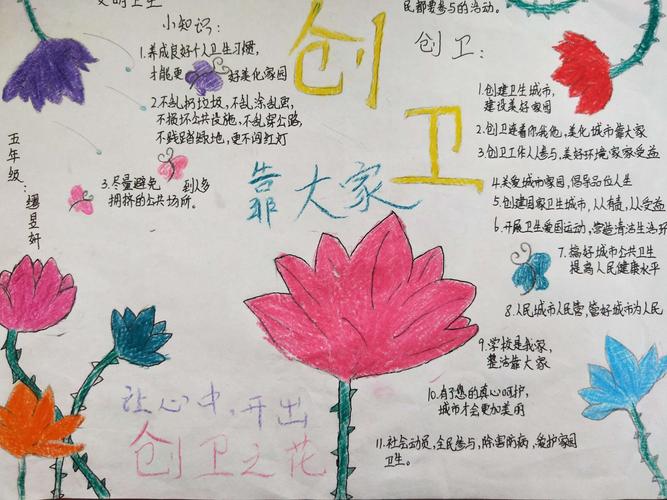 文明卫生
小知识：
1.养成良好个人卫生习惯，
才能更好美化家园
2.不乱扔垃圾，不乱涂乱画，
不损坏公共设施，不乱穿公路，
不践踏绿地，更不闯红灯
3.尽量避免 到人多
拥挤的公共场所。
五年级：
创卫
靠大家
让心中，开出
创卫之花
民都要参与的活动。
创卫：
1.创建卫生城市，
建设美好家园
2.创卫连着你我他，美化城市靠大家
3.创卫工作人人参与，美好环境家家受益
4.关爱城市家园，倡导品位人生
5.创建国家卫生城市，从有责，从受益
6.开展卫生爱国运动，营造清洁生活环
7.搞好城市公共卫生
提高人民健康水平
8.人民城市人民管，管好城市为人民
9.学校是我家，
整洁靠大家
10.有了您的真心呵护，
城市才会更加美丽
11.社会动员，全民参与，除害防病，爱护家园
卫生。